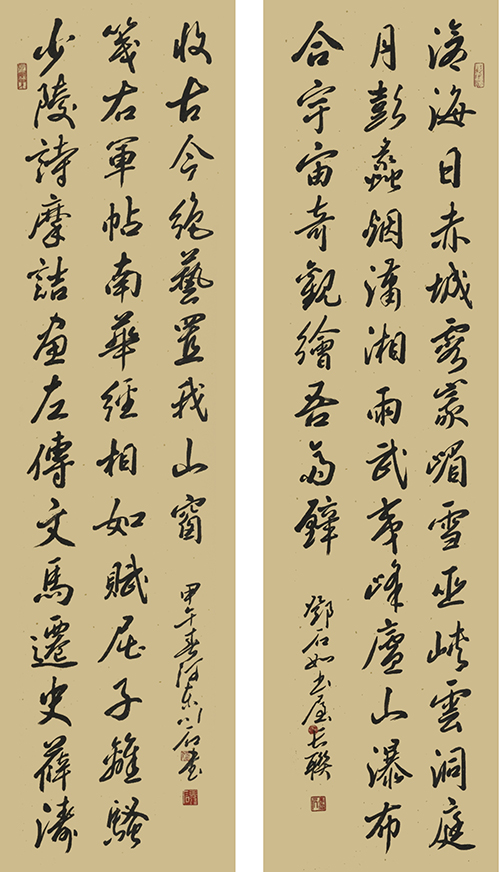 滄海日赤城霞峨嵋雪巫峽雲洞庭
月彭蠡烟瀟湘雨武夷峰廬山瀑布
合宇宙奇觀繪吾斋壁
鄧石如书屋長聯
少陵詩摩詰画左傳文馬遷史薛濤
箋右軍帖南華經相如賦屈子離騷
收古今絶藝置我山窗
甲午春河东石书